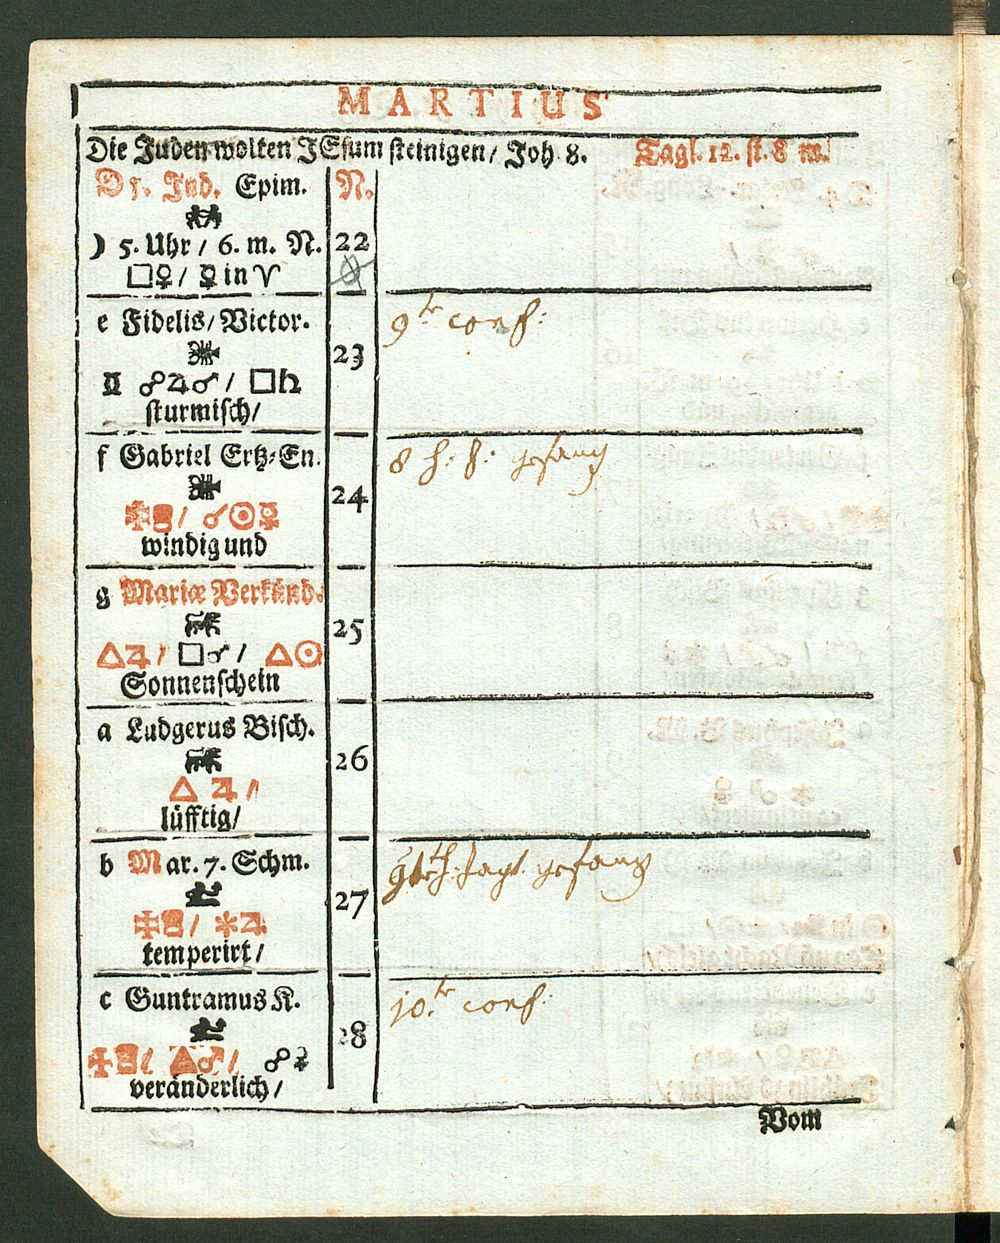 MARTIUS
Die Juden wolten JEsum steinigen/ Joh. 8. Tagl. 12. st. 8 m.
D 5. Jud. Epim. N.
☽ 5. Uhr / 6. m. N. 22
□♀/ ☿ in ♈
e Fidelis/ Victor. 9tr conf:
23
♊ ☍♃♂/ □♄
sturmisch/
f Gabriel Ertz-En. 8 h: f: gesang
24
/ ☌☉☿
windig und
g Mariæ Verkünd.
25
△♃/ □♂/ △☉
Sonnenschein
a Ludgerus Bisch.
26
△ ♃/
lüfftig/
b Mar. 7. Schm. gesang
27
/ ✱♃
temperirt/
c Guntramus K. 10.tr conf:
28
/ △♂/ ☍♀
veränderlich/
Vom